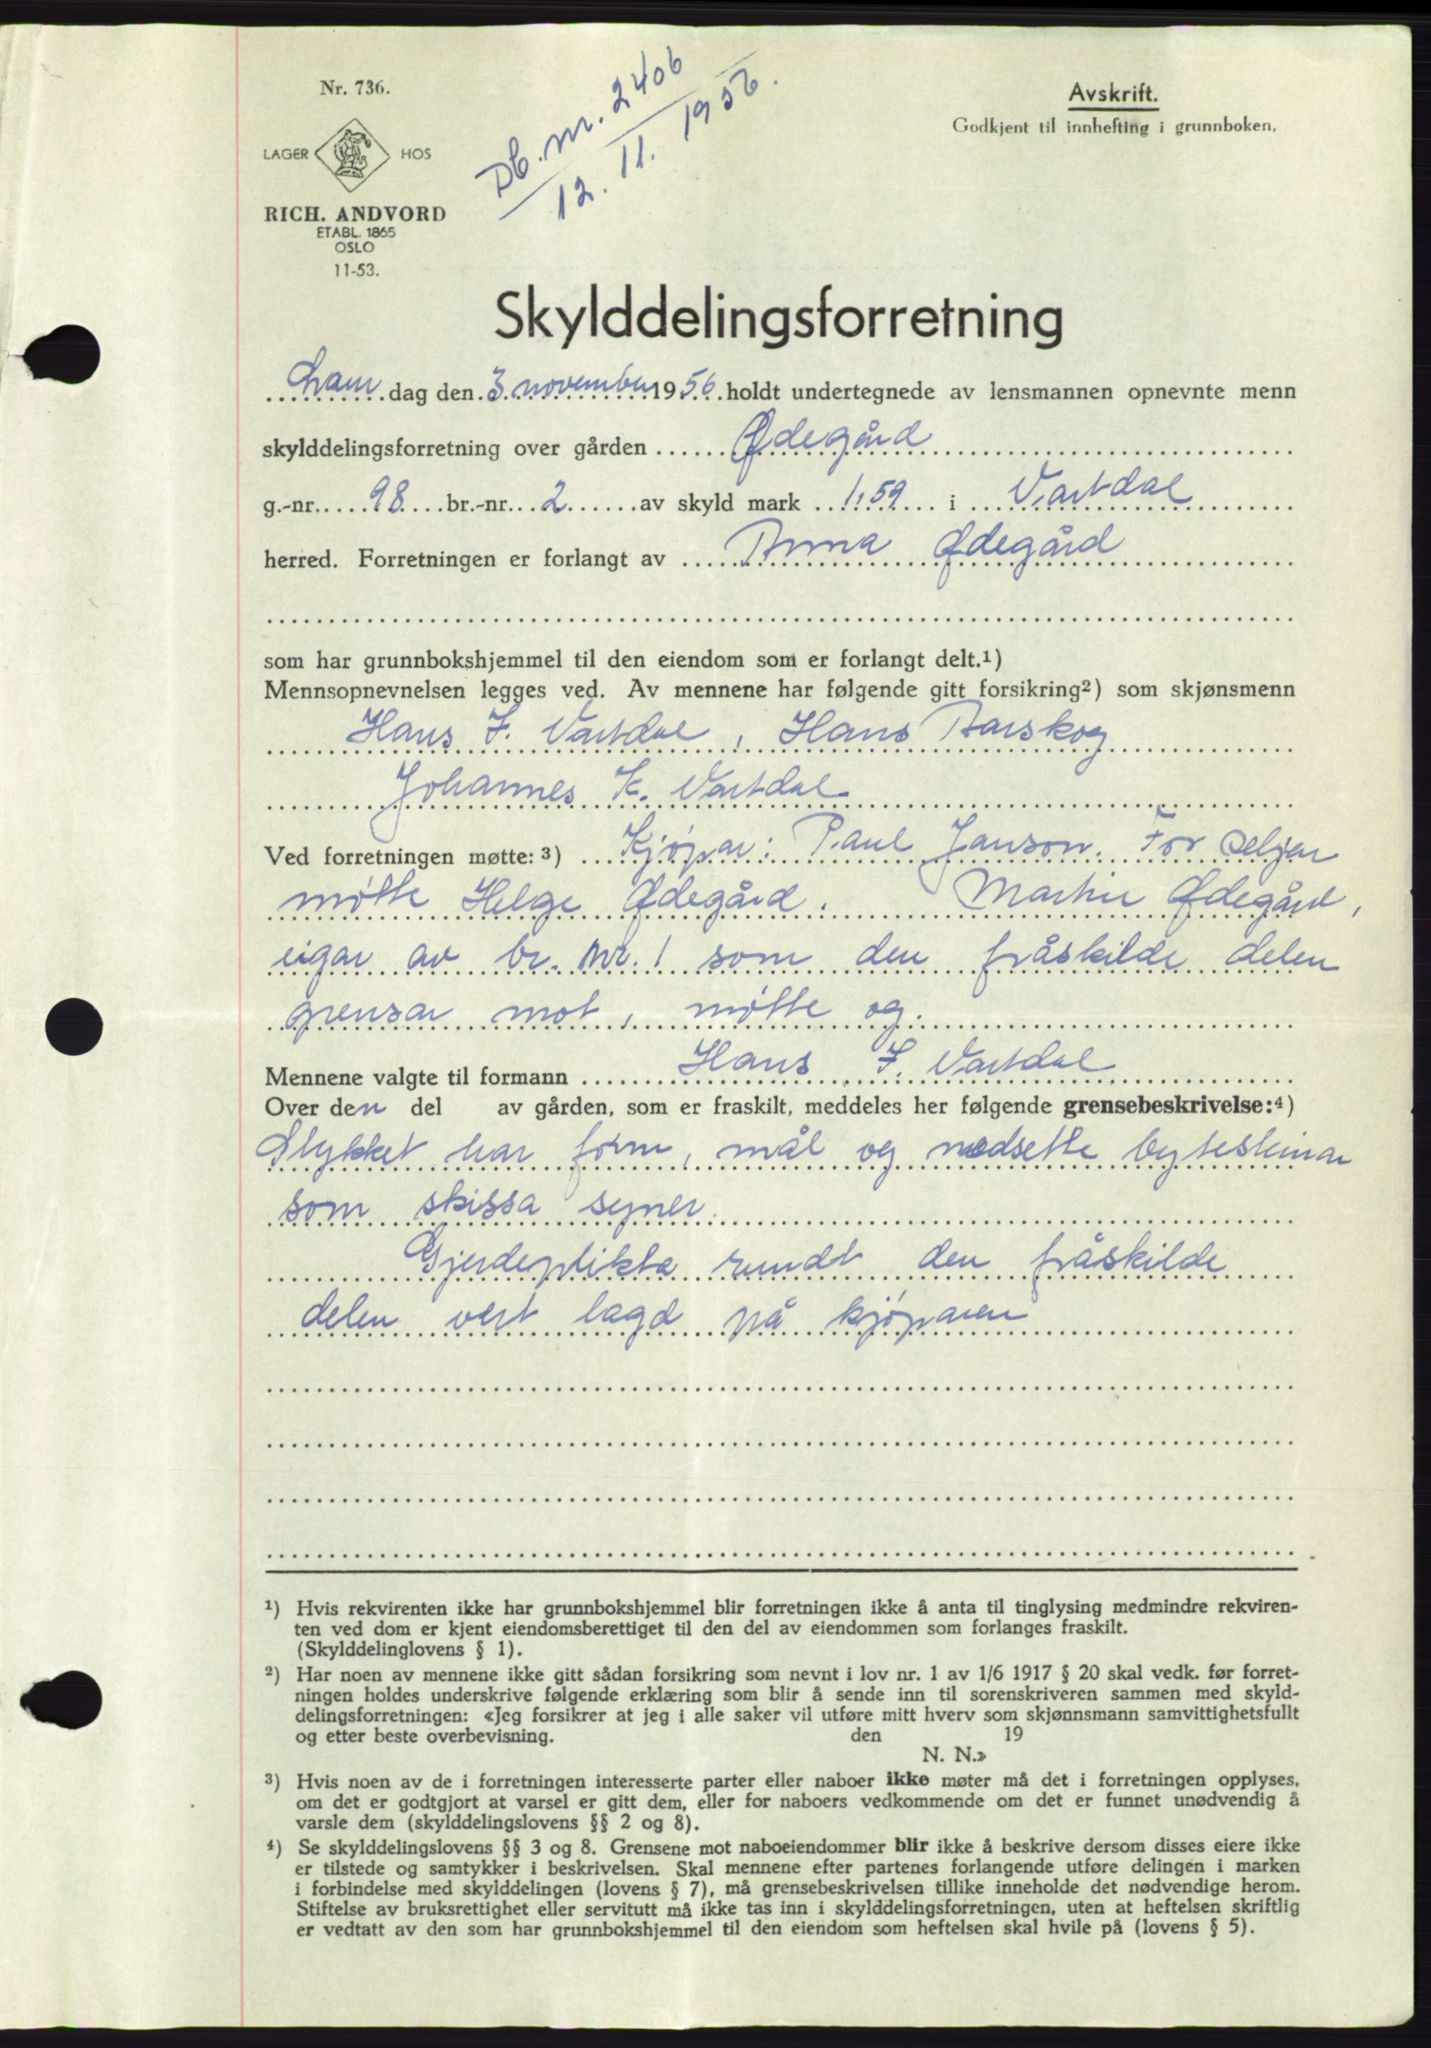 Nr. 736.
LAGER HOS
RICH. ANDVORD
ETABL. 1865
OSLO
11-53.
Db. nr. 2406
12. 11. 1956.
Avskrift.
Godkjent til innhefting i grunnboken.
Skylddelingsforretning
Laur dag den 3. november 1956 holdt undertegnede av lensmannen opnevnte menn
skylddelingsforretning over gården Ødegård
g.-nr. 98 br.-nr. 2 av skyld mark 1,59 i Vartdal
herred. Forretningen er forlangt av Anna Ødegård
som har grunnbokshjemmel til den eiendom som er forlangt delt.¹)
Mennsopnevnelsen legges ved. Av mennene har følgende gitt forsikring²) som skjønsmenn
Hans F. Vartdal, Hans Aarskog
Johannes K. Vartdal
Ved forretningen møtte: ³) Kjøpar: Paul Janson. For seljar
møtte Helge Ødegård. Martin Ødegård,
eigar av br. nr. 1 som den fråskilde delen
grensar mot, møtte og.
Mennene valgte til formann Hans F. Vartdal
Over den del av gården, som er fraskilt, meddeles her følgende grensebeskrivelse:⁴)
Stykket har form, mål og nedsette bytesteinar
som skissa syner.
Gjerdeplikta rundt den fråskilde
delen vert lagd på kjøparen
¹) Hvis rekvirenten ikke har grunnbokshjemmel blir forretningen ikke å anta til tinglysing medmindre rekviren-
ten ved dom er kjent eiendomsberettiget til den del av eiendommen som forlanges fraskilt.
(Skylddelinglovens § 1).
²) Har noen av mennene ikke gitt sådan forsikring som nevnt i lov nr. 1 av 1/6 1917 § 20 skal vedk. før forret-
ningen holdes underskrive følgende erklæring som blir å sende inn til sorenskriveren sammen med skyld-
delingsforretningen: «Jeg forsikrer at jeg i alle saker vil utføre mitt hverv som skjønnsmann samvittighetsfullt
og etter beste overbevisning. den 19
N. N.»
³) Hvis noen av de i forretningen interesserte parter eller naboer ikke møter må det i forretningen opplyses,
om det er godtgjort at varsel er gitt dem, eller for naboers vedkommende om det er funnet unødvendig å
varsle dem (skylddelingslovens §§ 2 og 8).
⁴) Se skylddelingslovens §§ 3 og 8. Grensene mot naboeiendommer blir ikke å beskrive dersom disses eiere ikke
er tilstede og samtykker i beskrivelsen. Skal mennene efter partenes forlangende utføre delingen i marken
i forbindelse med skylddelingen (lovens § 7), må grensebeskrivelsen tillike inneholde det nødvendige herom.
Stiftelse av bruksrettighet eller servitutt må ikke tas inn i skylddelingsforretningen, uten at heftelsen skriftlig
er vedtatt av den som har grunnbokshjemmel til den eiendom som heftelsen skal hvile på (lovens § 5).